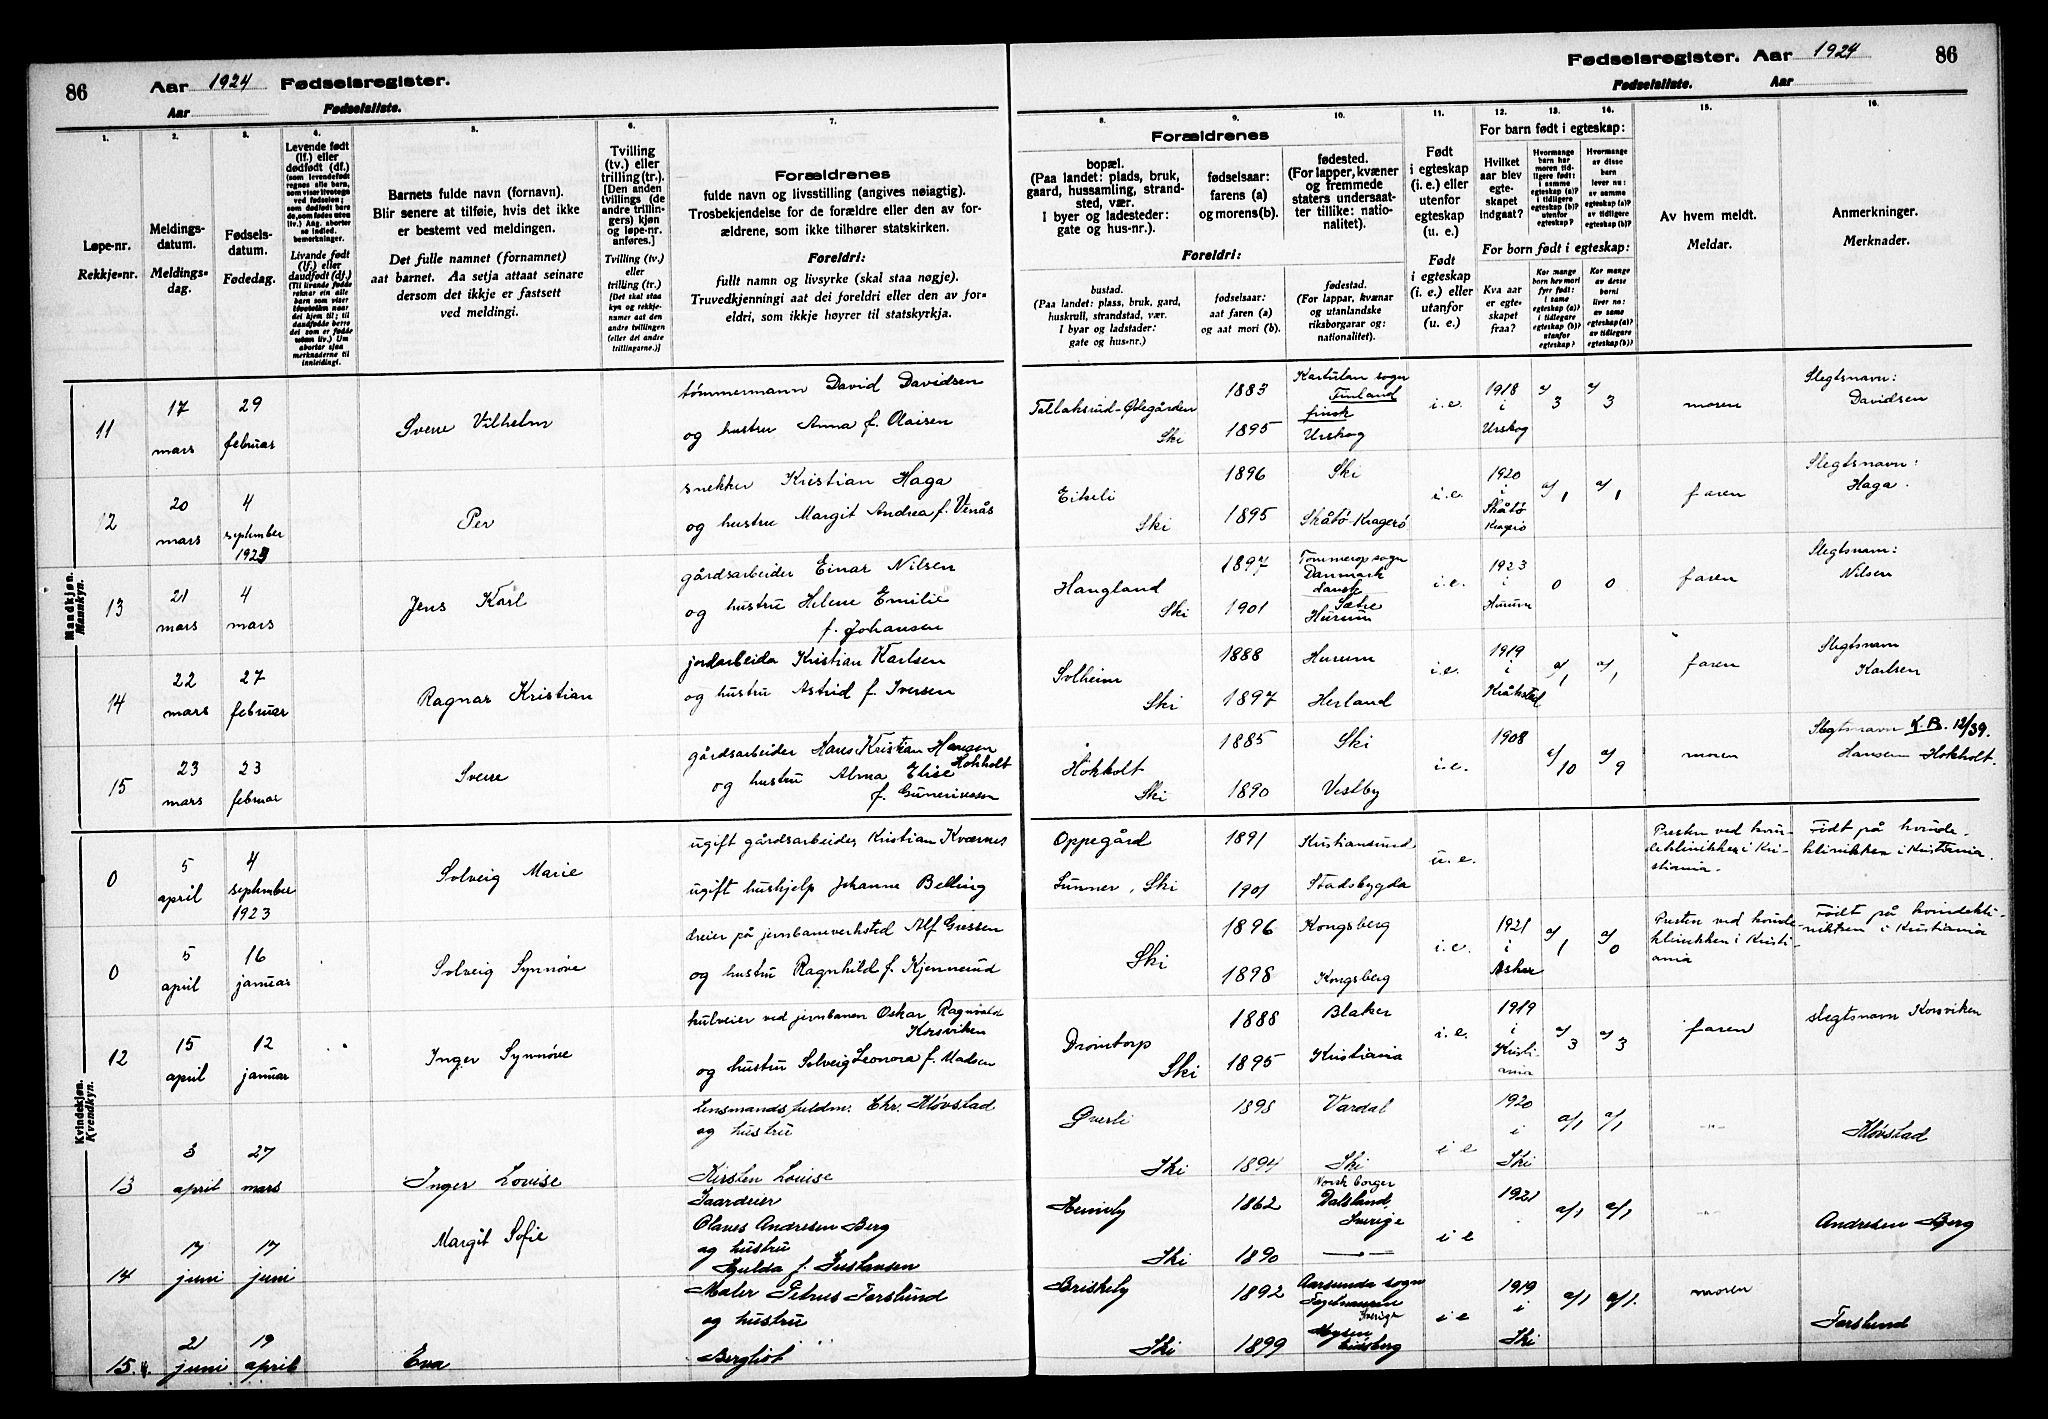 86 Aar 1924 Fødselsregister.
Aar Fødselsliste.
1. 2. 3. 4. 5. 6. 7.
Løpe-nr.
Rekkje-nr.
Meldings-
datum.
Meldings-
dag.
Fødsels-
datum.
Fødedag.
Levende født
(lf.) eller
dødfødt (df.)
Livande fødd
(lf.) eller
daudfødt (df.)
Barnets fulde navn (fornavn).
Blir senere at tilføie, hvis det ikke
er bestemt ved meldingen.
Det fulle namnet (fornamnet)
aat barnet. Aa setja attaat seinare
dersom det ikkje er fastsett
ved meldingi.
Tvilling
(tv.) eller
trilling (tr.).
[Den anden
tvillings (de
andre trillin-
gers) kjøn
og løpe-nr.
anføres.]
Tvilling (tv.)
eller
trilling (tr.)
[Det skal staa
kyn og rekkje-
numer aat den
andre tvillingen
(eller dei andre
trillingarne.)]
Forældrenes
fulde navn og livsstilling (angives nøiagtig).
Trosbekjendelse for de forældre eller den av for-
ældrene, som ikke tilhører statskirken.
Foreldri:
fullt namn og livsyrke (skal staa nøgje).
Truvedkjenningi aat dei foreldri eller den av for-
eldri, som ikkje høyrer til statskyrkja.
Mandkjøn.
Mannkyn.
11 17 mars 29 februar Sverre Vilhelm
tømmermann David Davidsen
og hustru Anna f. Olaisen
12 20 mars 4 september 1923 Per
snekker Kristian Haga
og hustru Margit Andrea f. Venås
13 21 mars 4 mars Jens Karl
gårdsarbeider Einar Nilsen
og hustru Helene Emilie
f. Johansen
14 22 mars 27 februar Ragnar Kristian
jordarbeider Kristian Karlsen
og hustru Astrid f. Iversen
15 23 mars 23 februar Sverre
gårdsarbeider Hans Kristian Hansen
Hokholt
og hustru Alma Elise
f. Gunerivssen
Kvindekjøn.
Kvendkyn.
0 5 april 4 september 1923 Solveig Marie
ugift gårdsarbeider Kristian Kværnes
ugift hushjelp Johanne Belling
0 5 april 16 januar Solveig Synnøve
dreier på jernbaneverksted Alf Giessen
og hustru Ragnhild f. Kjennerud
12 15 april 12 januar Inger Synnøve
ved jernbanen Oskar Ragnvald
Korsviken
og hustru Solveig Leonora f. Madsen
13 3 april 27 mars Inger Lovise
Lensmandsfuldm. Chr. Kløvstad
og hustru
Kirsten Louise
14 17 juni 17 juni Margit Sofie
Gaardeier
Olaves Andresen Berg
og hustru
Hulda f. Gustavsen
15. 21 juni 19 april Eva
Maler Petrus Forslund
og hustru
Bergliot
Fødselsregister. Aar 1924 86
Fødselsliste. Aar
8. 9. 10. 11. 12. 13. 14. 15. 16.
Forældrenes
bopæl.
(Paa landet: plads, bruk,
gaard, hussamling, strand-
sted, vær.
I byer og ladesteder:
gate og hus-nr.).
fødselsaar:
farens (a)
og morens (b).
fødested.
(For lapper, kvæner
og fremmede
staters undersaat-
ter tillike: natio-
nalitet).
Foreldri:
bustad.
(Paa landet: plass, bruk, gard,
huskrull, strandstad, vær.
I byar og ladstader:
gate og hus-nr.)
fødselsaar:
aat faren (a)
og aat mori (b).
fødestad.
(For lappar, kvænar
og utanlandske
riksborgarar: og
nationalitet).
Født
i egteskap
(i. e.) eller
utenfor
egteskap
(u. e.)
Født
i egteskap
(i. e.) eller
utanfor
(u. e.)
For barn født i egteskap:
Hvilket
aar blev
egte-
skapet
indgaat?
For born født i egteskap:
Kva aar
er egte-
skapet
fraa?
Av hvem meldt.
Meldar.
Anmerkninger.
Merknader.
Tallaksrud-Ødegården
Ski 1883 1895 Finland
finsk
Urskog i.e. 1918 i Urskog a/3 a/3 moren Slegtsnavn:
Davidsen
Eikeli
Ski 1896 1895 Ski
Skåtø Kragerø i.e. 1920 i Skåtø Kragerø a/1 a/1 faren Slegtsnavn:
Haga.
Haugland
Ski 1897 1901 Tommerop sogn
Danmark
dansk
Sætre
Hurum i.e. 1923 i Hurum 0 0 faren Slegtsnavn:
Nilsen
Solheim
Ski 1888 1897 Hurum
Herland i.e. 1919 i Kråkstad a/1 a/1 faren Slegtsnavn
Karlsen
Hokholt
Ski 1885 1890 Ski
Vestby i.e. 1908 a/10 a/9 moren Slegtsnavn K.B. 12/39.
Hansen Hokholt.
Oppegård
Sunner, Ski 1891 1901 Kristiansund
Stadsbygda u.e. Presten ved kvin-
deklinikken i Kri-
stiania. Født på kvinde-
klinikken i Kristiania.
Ski 1896 1898 Kongsberg
Kongsberg i.e. 1921 i Asker a/1 a/0 Presten ved kvinde-
klinikken i Kristi-
ania Født på kvindekli-
nikken i Kristiania
Drømtorp
Ski 1888 1895 Blaker
Kristiania i.e. 1919 i Kristi-
ania a/3 a/3 faren slegtsnavn Korsviken
Øverli
Ski 1898 1894 Vardal
Ski i e 1920 i Ski a/1 a/1 -"- Kløvstad
Ski 1862 1890 Norsk borger
Dalsland,
Sverige
-"- i e 1921 a/1 a/1 -"- Andresen Berg
Briskeby
Ski 1892 1899 Aarsunda sogn
Sverige
Mysen
Eidsberg i e 1919 i Ski a/1 a/1. moren Forslund